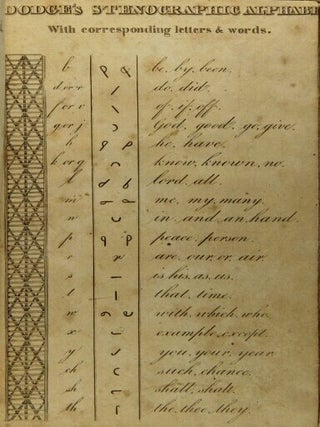 DODGE'S STENOGRAPHIC ALPHABET
With corresponding letters & words.
b be, by, been.
d or r do, did.
f or v of, if, off.
g or j God, good, go, give.
h he, have.
k or q know, known, no.
l lord, all.
m me, my, many.
n in, and, an, hand.
p peace, person.
r are, our, or, air.
s is, his, as, us.
t that, time.
w with, which, who.
x example, except.
y you, your, year.
ch such, chance.
sh shall, shalt.
th the, thee, they.